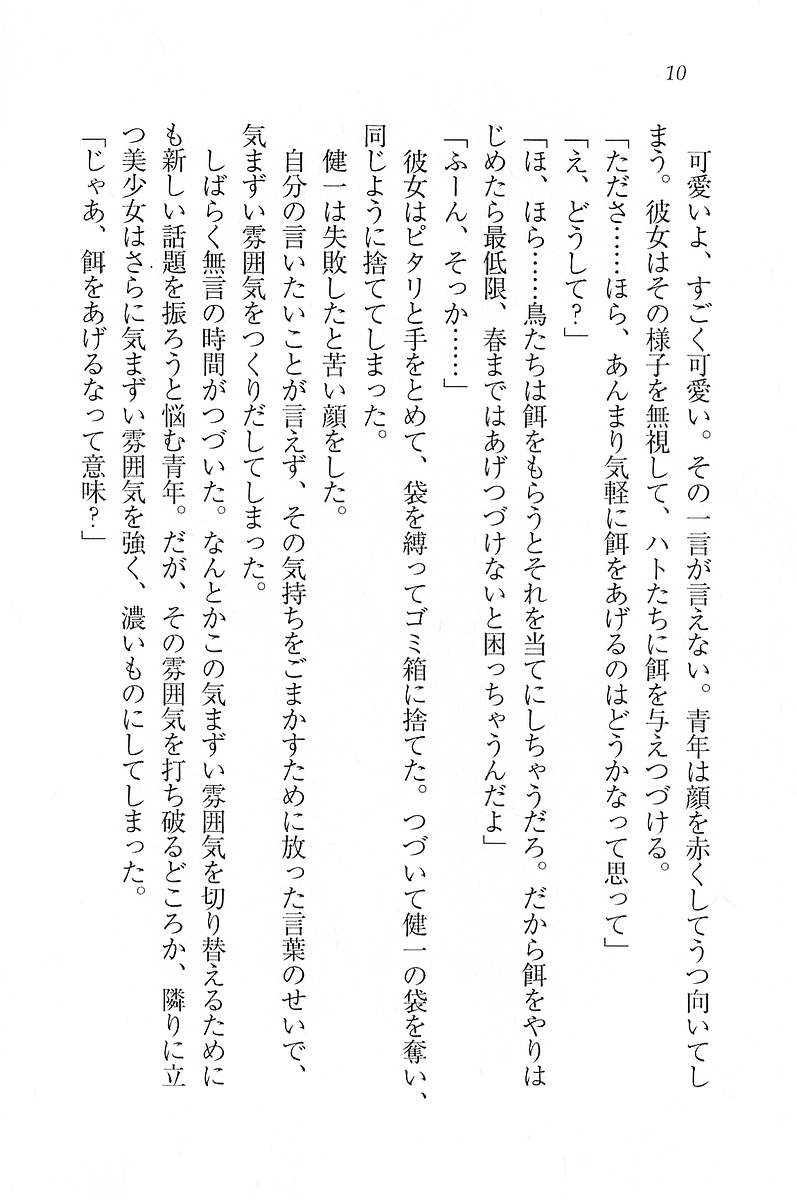 10
可愛いよ、すごく可愛い。その一言が言えない。青年は顔を赤くしてうつ向いてし
まう。彼女はその様子を無視して、ハトたちに餌を与えつづける。
「たださ……ほら、あんまり気軽に餌をあげるのはどうかなって思って」
「え、どうして?」
「ほ、ほら……鳥たちは餌をもらうとそれを当てにしちゃうだろ。だから餌をやりは
じめたら最低限、春まではあげつづけないと困っちゃうんだよ」
「ふーん、そっか……」
彼女はピタリと手をとめて、袋を縛ってゴミ箱に捨てた。つづいて健一の袋を奪い、
同じように捨ててしまった。
健一は失敗したと苦い顔をした。
自分の言いたいことが言えず、その気持ちをごまかすために放った言葉のせいで、
気まずい雰囲気をつくりだしてしまった。
しばらく無言の時間がつづいた。なんとかこの気まずい雰囲気を切り替えるために
も新しい話題を振ろうと悩む青年。だが、その雰囲気を打ち破るどころか、隣りに立
つ美少女はさらに気まずい雰囲気を強く、濃いものにしてしまった。
「じゃあ、餌をあげるなって意味?」